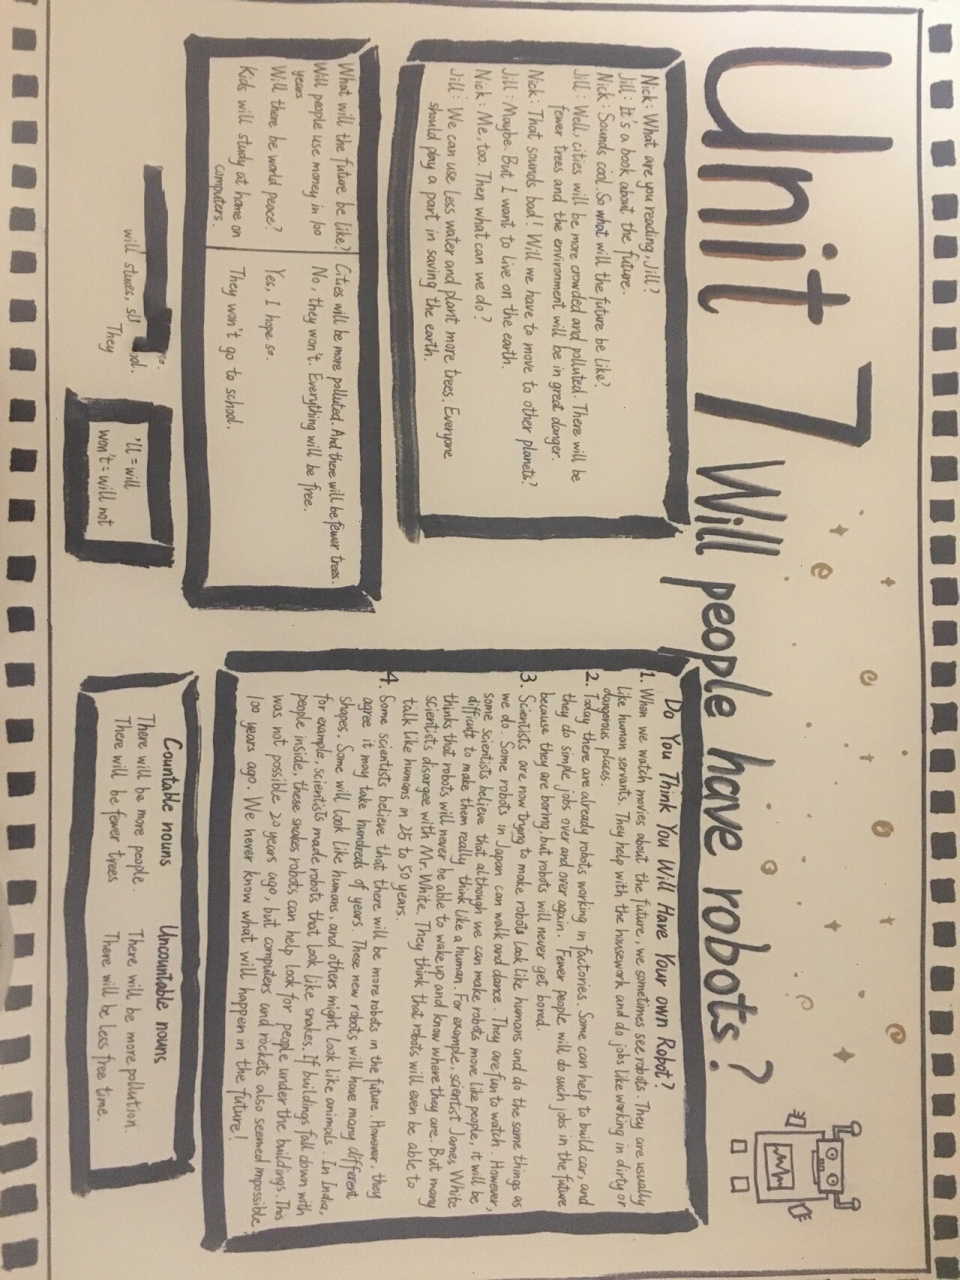 Unit 7 Will people have robots?
Nick: What are you reading, Jill?
Jill: It's a book about the future.
Nick: Sounds cool. So what will the future be like?
Jill: Well, cities will be more crowded and polluted. There will be
fewer trees and the environment will be in great danger.
Nick: That sounds bad! Will we have to move to other planets?
Jill: Maybe. But I want to live on the earth.
Nick: Me, too. Then what can we do?
Jill: We can use less water and plant more trees. Everyone
should play a part in saving the earth.
What will the future be like?
Cities will be more polluted. And there will be fewer trees.
Will people use money in 100
years
No, they won't. Everything will be free.
Will there be world peace?
Yes, I hope so.
Kids will study at home on
computers.
They won't go to school.
will
They
'll = will
won't = will not
Do You Think You Will Have Your own Robot?
1. When we watch movies about the future, we sometimes see robots. They are usually
like human servants. They help with the housework and do jobs like working in dirty or
dangerous places.
2. Today there are already robots working in factories. Some can help to build car, and
they do simple jobs over and over again. Fewer people will do such jobs in the future
because they are boring, but robots will never get bored.
3. Scientists are now trying to make robots look like humans and do the same things as
we do. Some robots in Japan can walk and dance. They are fun to watch. However,
some scientists believe that although we can make robots move like people, it will be
difficult to make them really think like a human. For example, scientist James White
thinks that robots will never be able to wake up and know where they are. But many
scientists disargee with Mr. White. They think that robots will even be able to
talk like humans in 25 to 50 years.
4. Some scientists believe that there will be more robots in the future. However, they
agree it may take hundreds of years. These new robots will have many different
shapes. Some will look like humans, and others might look like animals. In India,
for example, scientists made robots that look like snakes. If buildings fall down with
people inside, these snakes robots can help look for people under the buildings. This
was not possible 20 years ago, but computers and rockets also seemed impossible
100 years ago. We never know what will happen in the future!
Countable nouns
Uncountable nouns
There will be more people.
There will be more pollution.
There will be fewer trees
There will be less free time.